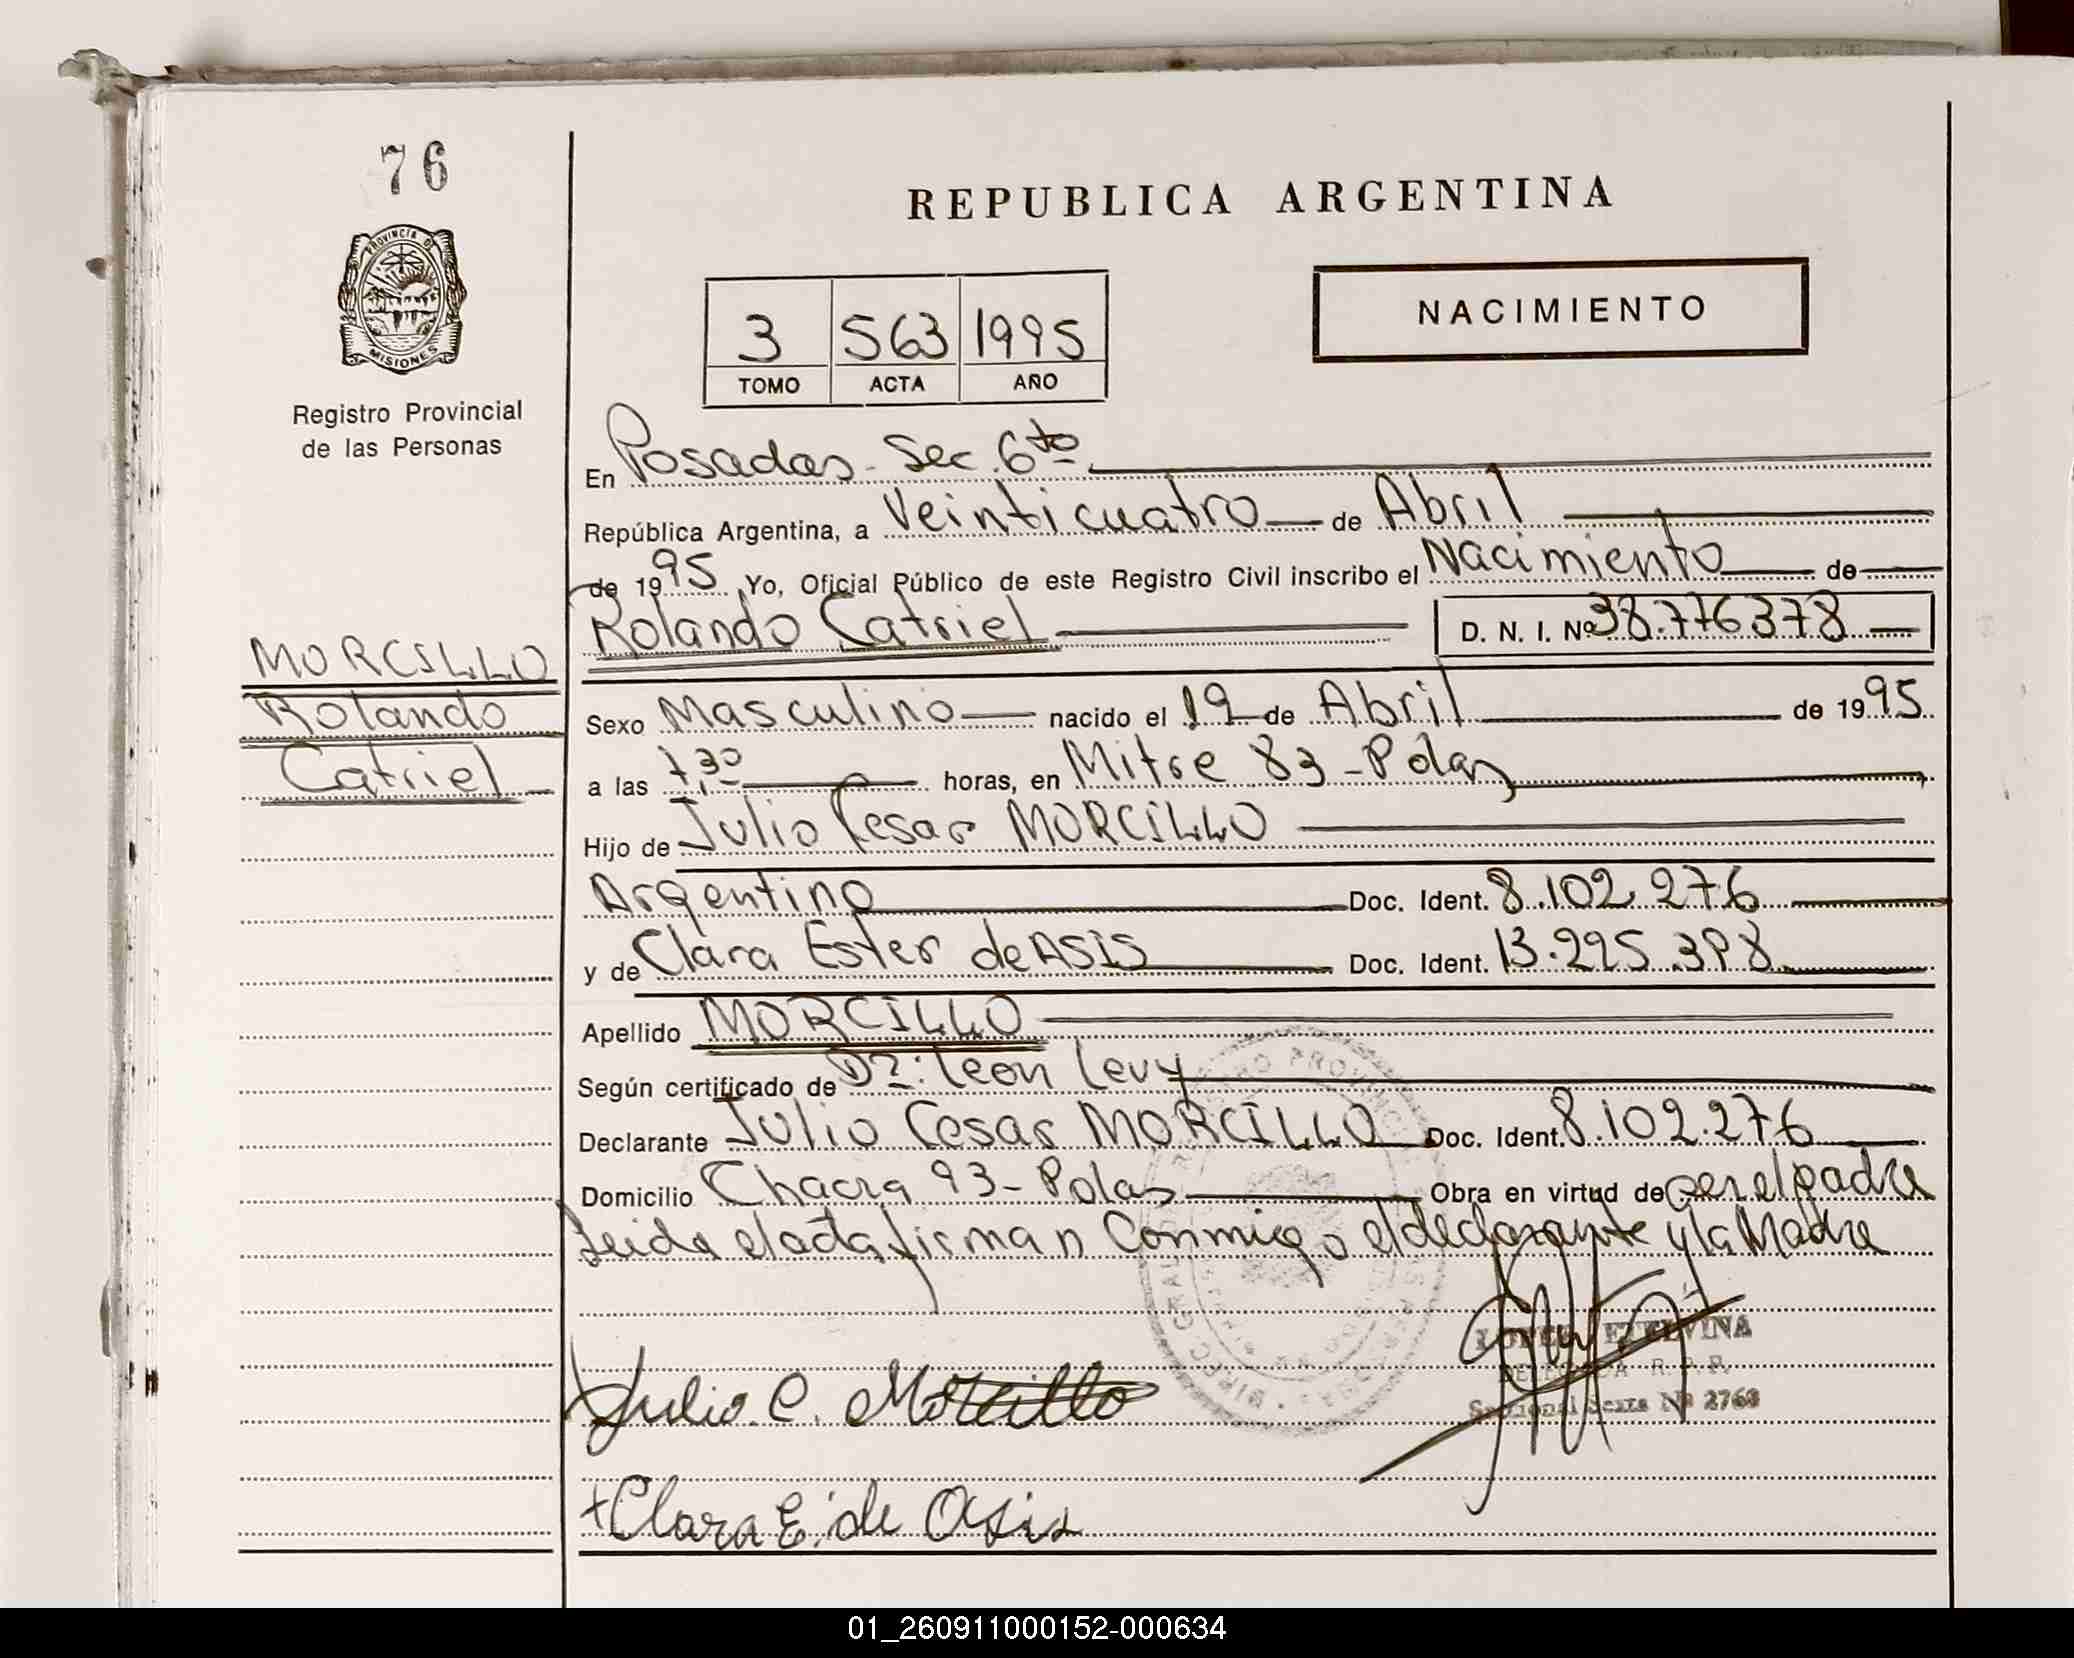 76
PROVINCIA DE
MISIONES
Registro Provincial
de las Personas
MORCILLO
Rolando
Catriel
REPUBLICA ARGENTINA
3 563 1995
TOMO ACTA AÑO
NACIMIENTO
En Posadas - Sec. 6to
República Argentina, a Veinticuatro de Abril
de 1995 Yo, Oficial Público de este Registro Civil inscribo el Nacimiento de
Rolando Catriel D. N. I. Nº 38.776378
Sexo Masculino nacido el 19 de Abril de 1995
a las 7,30 horas, en Mitre 83 - Pdas
Hijo de Julio Cesar MORCILLO
Argentino Doc. Ident. 8.102.276
y de Clara Ester de ASIS Doc. Ident. 13.225.398
Apellido MORCILLO
Según certificado de Dr: Leon Levy
Declarante Julio Cesar MORCILLO Doc. Ident. 8.102.276
Domicilio Chacra 93 - Pdas Obra en virtud de ser el padre
Leida el acta firman Conmigo el declarante y la Madre
LOPEZ ETELVINA
DELEGADA R. P. P.
Seccional Sexta Nº 2768
Julio C. Morcillo
Clara E. de Asis
01_260911000152-000634